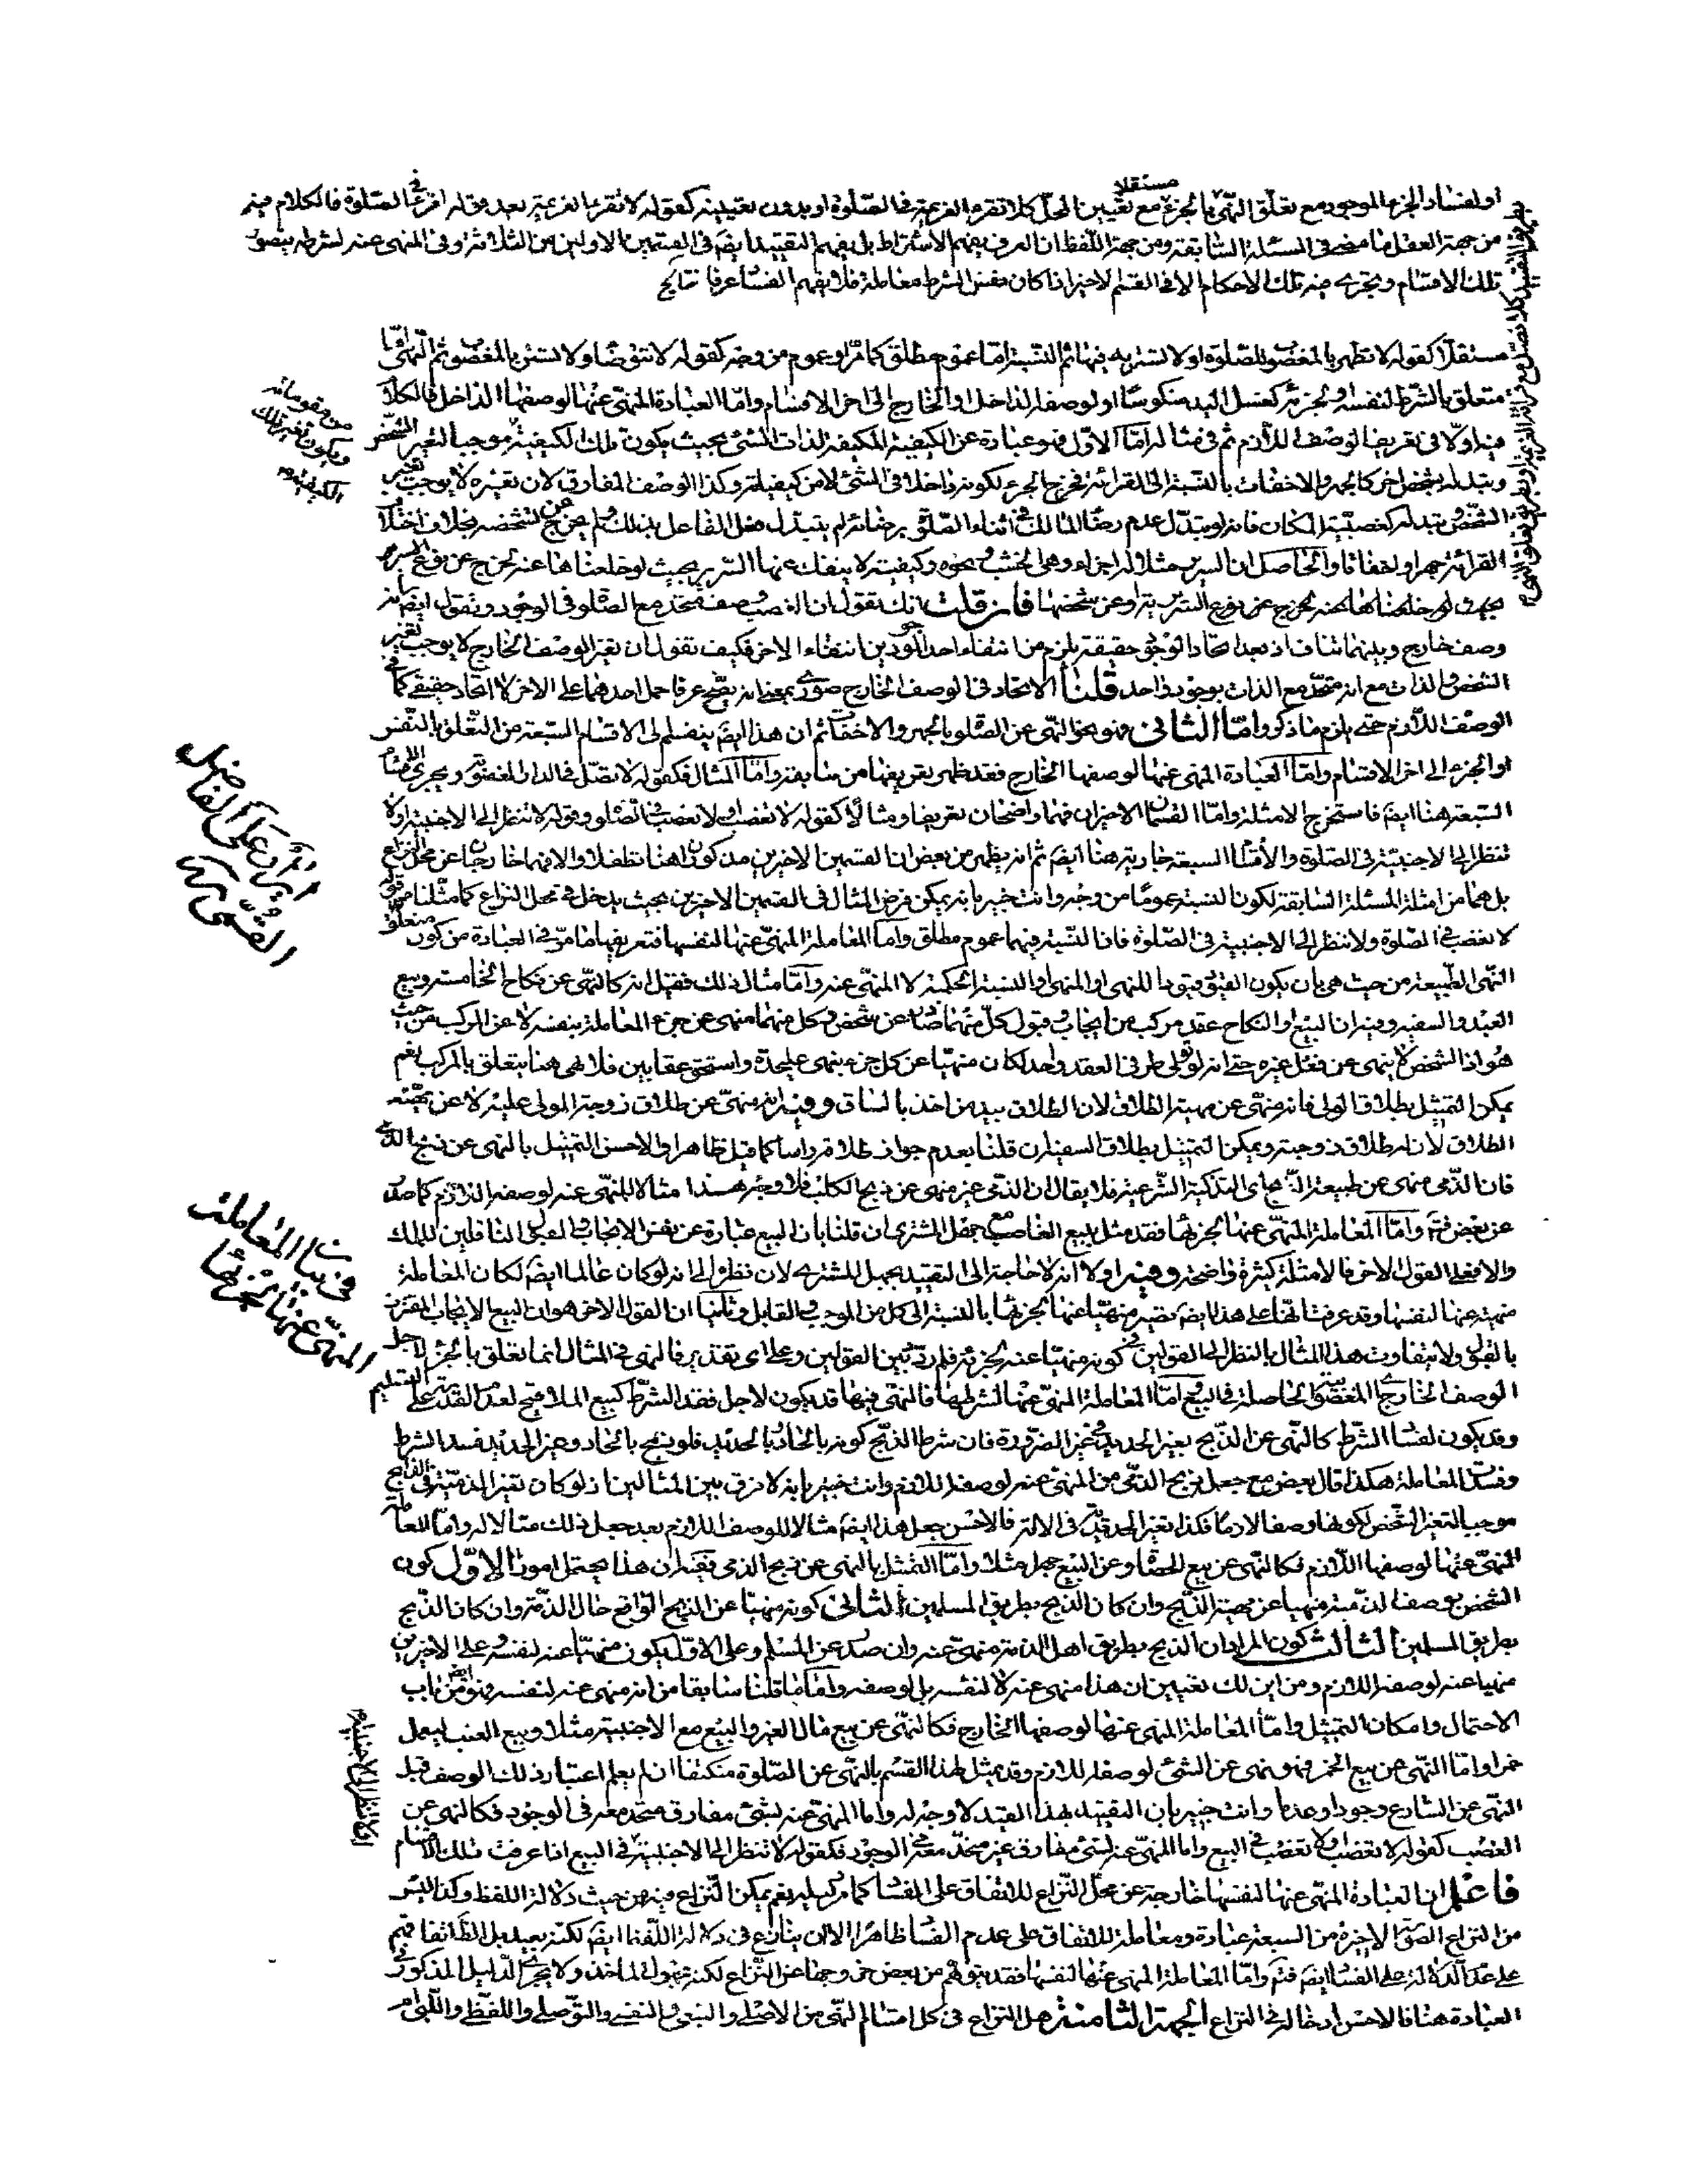 او لفساد الجزء الموجود مع تعلّق النّهى بالجزء مستقلا مع تعيين المحلّ كلا تقرء العزيمة فى الصّلوة او بدون تعيينه كقوله لا تقرء العزيمة بعد قوله اقرء فى الصّلوة فالكلام فيه
من جهة العقل ما مضى فى المسئلة السّابقة ومن جهة اللّفظ ان العرف يفهم الاشتراط بل يفهم التقييد ايضا فى القسمين الاولين من الثلاثة وفى المنهى عنه لشرطه يتصوّر
تلك الاقسام ويجرى فيه تلك الاحكام الا فى القسم الاخير اذا كان نفس الشرط معاملة فلا يفهم الفساد عرفا
مستقلّا كقوله لا تطهر بالمغصوب للصّلوة او لا تستتر به فيها ثم النسبة امّا عموم مطلق كما مرّ او عموم من وجه كقوله لا تتوضّأ ولا تستتر بالمغصوب ثم النّهى امّا
متعلّق بالشّرط لنفسه او لجزئه كغسل اليد منكوسًا او لوصفه الداخل او الخارج الى اخر الاقسام وامّا العبادة المنهىّ عنها لوصفها الداخل فالكلام
فيه اولا فى تعريف الوصف اللّازم ثم فى مثاله امّا الاوّل فهو عبارة عن الكيفيّة المكيفة لذات الشئ بحيث يكون تلك الكيفيّة موجبا لتغير الشّخص
وتبدله بشخص اخر كالجهر والاخفات بالنّسبة الى القرائة فخرج الجزء لكونه داخلا فى الشئ لا من كيفياته وكذا الوصف المفارق لان تغيّره لا يوجب تغير
الشّخص وتبدله كغصبيّة المكان فانه لو تبدّل عدم رضا المالك فى اثناء الصّلوة برضائه لم يتبدّل فعل الفاعل بذلك ولم يخرج عن تشخصه بخلاف اختلاف
القرائة جهرا واخفاتا والحاصل ان السرير مثلا له اجزاء وهى الخشب ونحوه وكيفية لا ينفك عنها السّرير بحيث لو خلعناها عنه لخرج عن نوع السرير
بحيث لو خلعناها عنه لخرج عن نوع السّريرية او عن شخصها فان قلت انك تقول ان الغصب وصف متحد مع الصّلوة فى الوجود وتقول ايضا انه
وصف خارج وبينهما تناف اذ بعد اتحاد الوجود حقيقة يلزم من انتفاء احد الموجودين انتفاء الاخر فكيف تقول ان تغير الوصف الخارج لا يوجب تغير
الشخص والذات مع انه متحد مع الذات بوجود واحد قلنا الاتحاد فى الوصف الخارج صورى بمعنى انه يصحّ عرفا حمل احدهما على الاخر لا اتحاد حقيقى كما فى
الوصف اللّازم حتى يلزم ما ذكر وامّا الثانى فهو نحو النّهى عن الصّلوة بالجهر والاخفات ثم ان هذا ايضا ينقسم الى الاقسام السّبعة من التّعلق بالنّفس
او الجزء الى اخر الاقسام وامّا العبادة المنهى عنها لوصفها الخارج فقد ظهر تعريفها من سابقه وامّا المثال فكقوله لا تصلّ فى الدار المغصوبة ويجرى الاقسام
السّبعة هنا ايضا فاستخرج الامثلة وامّا القسمان الاخيران فهما واضحان تعريفا ومثالا كقوله لا تغصب ولا تغصب فى الصّلوة وقوله لا تنظر الى الاجنبية او لا
تنظر الى الاجنبيّة فى الصّلوة والاقسام السبعة جارية هنا ايضا ثم انه يظهر من بعض ان القسمين الاخيرين مذكوران هنا تطفلا والا فهما خارجان عن محل النزاع
بل هما من امثلة المسئلة السّابقة لكون النسبة عموما من وجه وانت خبير بانه يمكن فرض المثال فى القسمين الاخيرين بحيث يدخل فى محل النزاع كما مثّلنا من قوله
لا تغصب فى الصّلوة ولا تنظر الى الاجنبية فى الصّلوة فان النّسبة فيهما عموم مطلق وامّا المعاملة المنهىّ عنها لنفسها فتعريفها ما مرّ فى العبادة من كون متعلّق
النّهى الطّبيعة من حيث هى بان يكون القيود قيودا للنهى او المنهى او النسبة الحكمية لا المنهىّ عنه وامّا مثال ذلك فقيل انه كالنّهى عن نكاح الخامسة وبيع
العبد والسفيه وفيه ان البيع او النكاح عقد مركب من ايجاب وقبول كلّ منهما صادر عن شخص وكل منهما منهى عن جزء المعاملة بنفسه لا عن المركب من حيث
هو اذ الشخص لا ينهى عن فعل غيره حتى انه لو تولى طرفى العقد واحد لكان منهيّا عن كل جزء بنهى عليحدة واستحق عقابين فلا نهى هنا يتعلق بالمركب نعم
يمكن التمثيل بطلاق الولى فانه منهىّ عن مهية الطلاق لان الطلاق بيد من اخذ بالساق وفيه انه منهىّ عن طلاق زوجة المولى عليه لا عن مهيّة
الطلاق لان له طلاق زوجته ويمكن التمثيل بطلاق السفيه ان قلنا بعدم جواز طلاقه راسا كما قيل ظاهرا والاحسن التمثيل بالنهى عن ذبح الذّمى
فان الذّمى منهى عن طبيعة الذّبح اى التذكية الشّرعيّة فلا يقال ان الذمّى غير منهى عن ذبح الكلب فلا وجه هذا مثالا للمنهىّ عنه لوصفه اللّازم كما صدر
عن بعض فتم وامّا المعاملة المنهىّ عنها لجزئها فقد مثل ببيع الغاصب مع جهل المشترى ان قلنا بان البيع عبارة عن نفس الايجاب والقبول الناقلين للملك
والا فعلى القول الاخر فالامثلة كثيرة واضحة وفيه اولا انه لا حاجة الى التقييد بجهل المشترى لان نظره الى انه لو كان عالما ايضا لكان المعاملة
منهية عنها لنفسها وقد عرفت انها على هذا ايضا تصير منهيّا عنها لجزئها بالنسبة الى كل من الموجب والقابل وثانيا ان القول الاخر هو ان البيع الايجاب المقترن
بالقبول ولا يتفاوت هذا المثال بالنظر الى القولين فى كونه منهيّا عنه لجزئه فلم ردّ بين القولين وعلى اى تقدير فالنهى فى المثال انما تعلق بالجزء لاجل
الوصف الخارج اى الغصبية الحاصلة فى البيع امّا المعاملة المنهىّ عنها لشرطها فالنهى فيها قد يكون لاجل فقد الشّرط كبيع الملاقيح لعدم القدرة على التسليم
وقد يكون لفساد الشّرط كالنّهى عن الذّبح بغير الحديد فى غير الضّرورة فان شرط الذّبح كونه بالحاد وبالحديد فلو ذبح بالحاد وغير الحديد فسد الشرط
وفسدت المعاملة هكذا قال بعض مع جعل ذبح الذمّى من المنهى عنه لوصفه اللازم وانت خبير بانه لا فرق بين المثالين اذ لو كان تغير الذميّة فى الذابح
موجبا لتغير الشّخص لكونها وصفا لازما فكذا تغير الحديدية فى الالة فالاحسن جعل هذا ايضا مثالا للوصف اللازم بعد جعل ذلك مثالا له وامّا المعاملة
المنهىّ عنها لوصفها اللّازم فكالنّهى عن بيع الحصاة وعن البيع جهلا مثلا وامّا التمثيل بالنهى عن ذبح الذمى ففيه ان هذا يحتمل امورا الاوّل كون
الشخص بوصف الذّميّة منهيا عن مهية الذّبح وان كان الذّبح بطريق المسلمين الثانى كونه منهيّا عن الذبح الواقع حال الذمّة وان كان الذّبح
بطريق المسلمين الثالث كون المراد ان الذبح بطريق اهل الذمة منهىّ عنه وان صدر عن المسلم وعلى الاوّل يكون منهيّا عنه لنفسه وعلى الاخيرين
منهيا عنه لوصفه اللازم ومن اين لك تعيين ان هذا منهى عنه لا لنفسه بل لوصفه وامّا ما قلنا سابقا من انه منهى عنه لنفسه فهو ايضا من باب
الاحتمال وامكان التمثيل وامّا المعاملة المنهى عنها لوصفها الخارج فكالنهّى عن بيع مال الغير والبيع مع الاجنبية مثلا وبيع العنب ليعمل
خمرا وامّا النّهى عن بيع الخمر فهو نهى عن الشئ لوصفه اللازم وقد يمثل لهذا القسم بالنّهى عن الصّلوة متكتفا ان لم يعلم اعتبار ذلك الوصف قبل
النّهى عن الشارع وجودا وعدما وانت خبير بان التقييد بهذا القيد لا وجه له واما المنهىّ عنه لشئ مفارق متحد معه فى الوجود فكالنهى عن
الغصب كقوله لا تغصب ولا تغصب فى البيع واما المنهىّ عنه لشئ مفارق غير متحدّ معه فى الوجود فكقوله لا تنظر الى الاجنبيّة فى البيع اذا عرفت تلك الاقسام
فاعلم ان العبادة المنهىّ عنها لنفسها خارجة عن محلّ النّزاع للاتفاق على الفساد كما مر نعم يمكن النّزاع فيه من حيث دلالة اللفظ وكذا ليس
من النزاع الصورة الاخيرة من السبعة عبادة ومعاملة للاتفاق على عدم الفساد ظاهرا الا ان ينازع فى دلالة اللّفظ ايضا لكنّه بعيد بل الظّ اتفاقهم
على عدم الدّلالة على الفساد ايضا فتم وامّا المعاملة المنهى عنها لنفسها فقد يتوهّم من بعض خروجها عن النّزاع لكنه مجهول الماخذ ولا يجرى الدّليل المذكور فى
العبادة هنا فالاحسن ادخاله فى النزاع الجهة الثامنة هل النزاع فى كل اقسام النّهى من الاصلى والتبعى والنفسى والتوصّلى واللفظى واللّبى ام
من مقوماته
ويكون تغير تلك
الكيفية
ايراد على الفاضل
القمّى ره
فى بيان المعاملة
المنهىّ عنها لجزئها